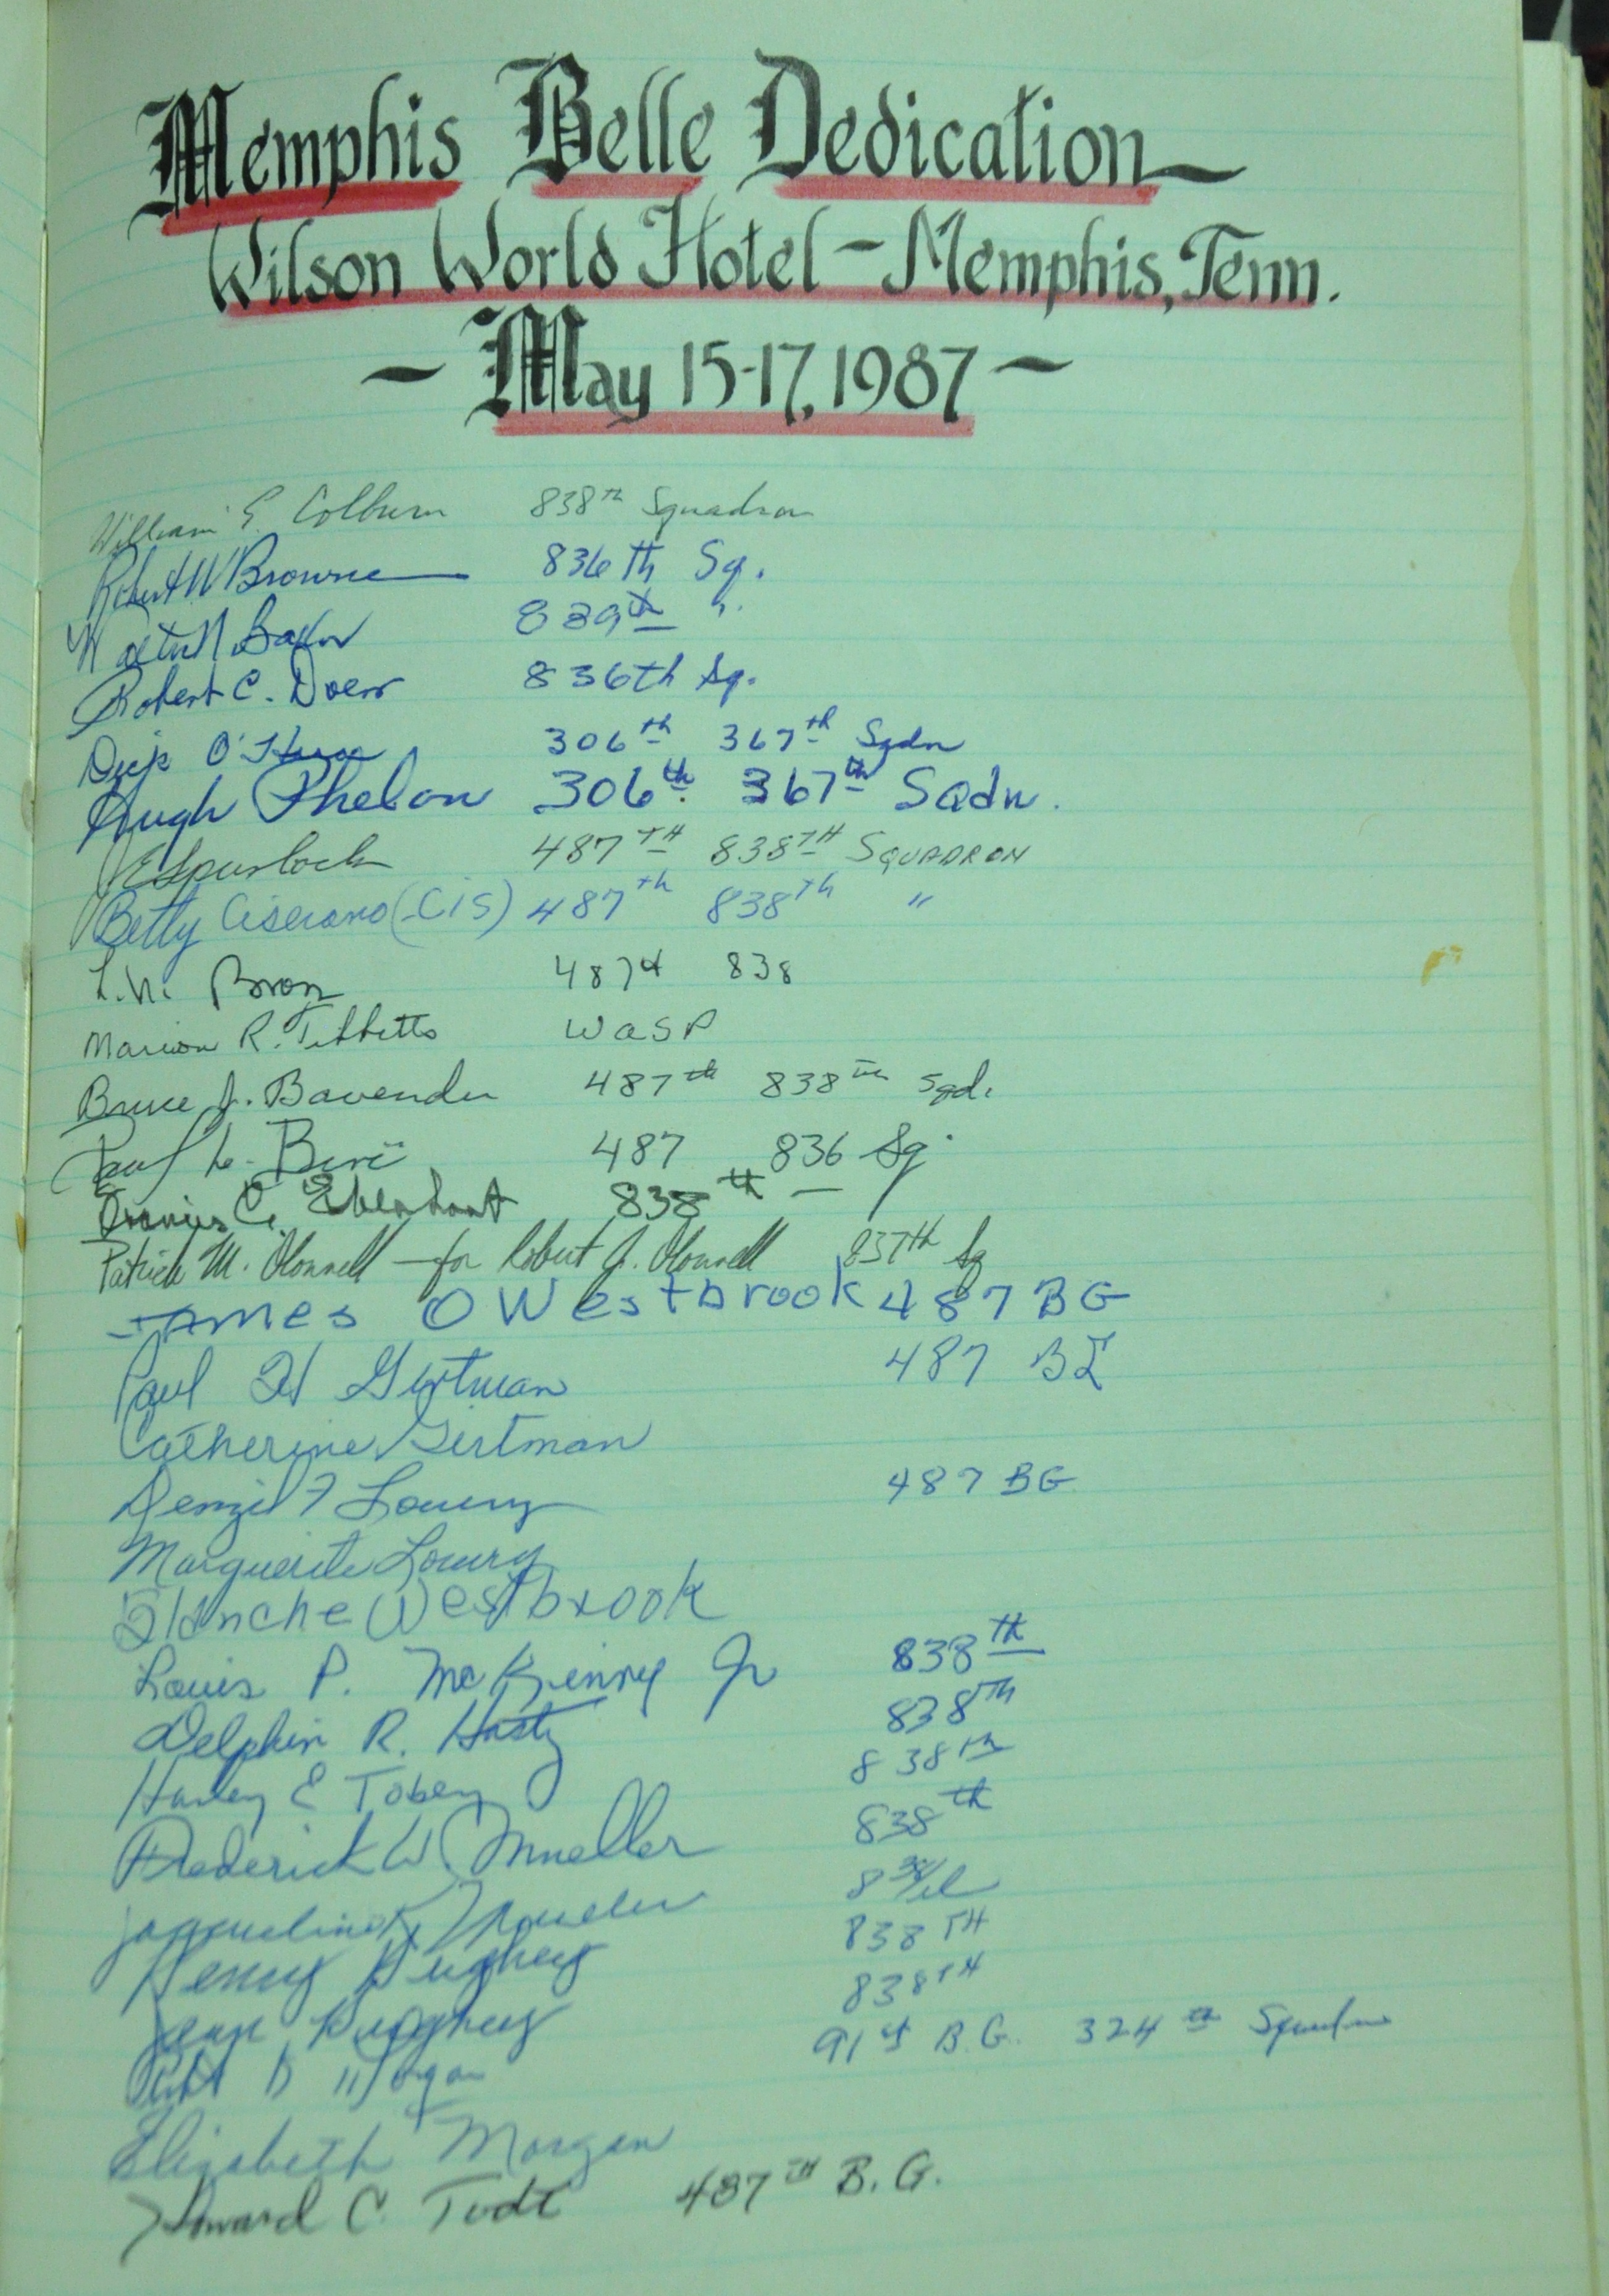 Memphis Belle Dedication
Wilson World Hotel - Memphis, Tenn.
- May 15-17, 1987 -
William E. Colburn 838th Squadron
Robert W Browne 836th Sq.
Walter N. 839th "
Robert C. Doerr 836th Sq.
306th 367th Sqdn
Hugh Phelan 306th 367th Sqdn.
Spurlock 487TH 838TH SQUADRON
Betty Ciserano (CIS) 487th 838th "
487th 838
Marion R. Tibbetts WASP
Bruce J. Bavender 487th 838th Sqd.
Paul 487 836 Sq.
Francis C. Eberhart 838th
Patrick M. O'Connell - for Robert J. O'Connell 837th Sq
JAMES O Westbrook 487 BG
Paul H Girtman 487 BG
Catherine Girtman
Denzil F Lowry 487 BG
Marguerite Lowry
Blanche Westbrook
Louis P. McKinney Jr 838th
Delphin R. Hasty 838TH
Harley E Tobey 838th
Frederick W. Mueller 838th
Jacqueline K Mueller 838th
Henry Hughey 838TH
Jean Hughey 838TH
Robt Morgan 91st B.G. 324th Squadron
Elizabeth Morgan
Howard C. Todt 487TH B.G.